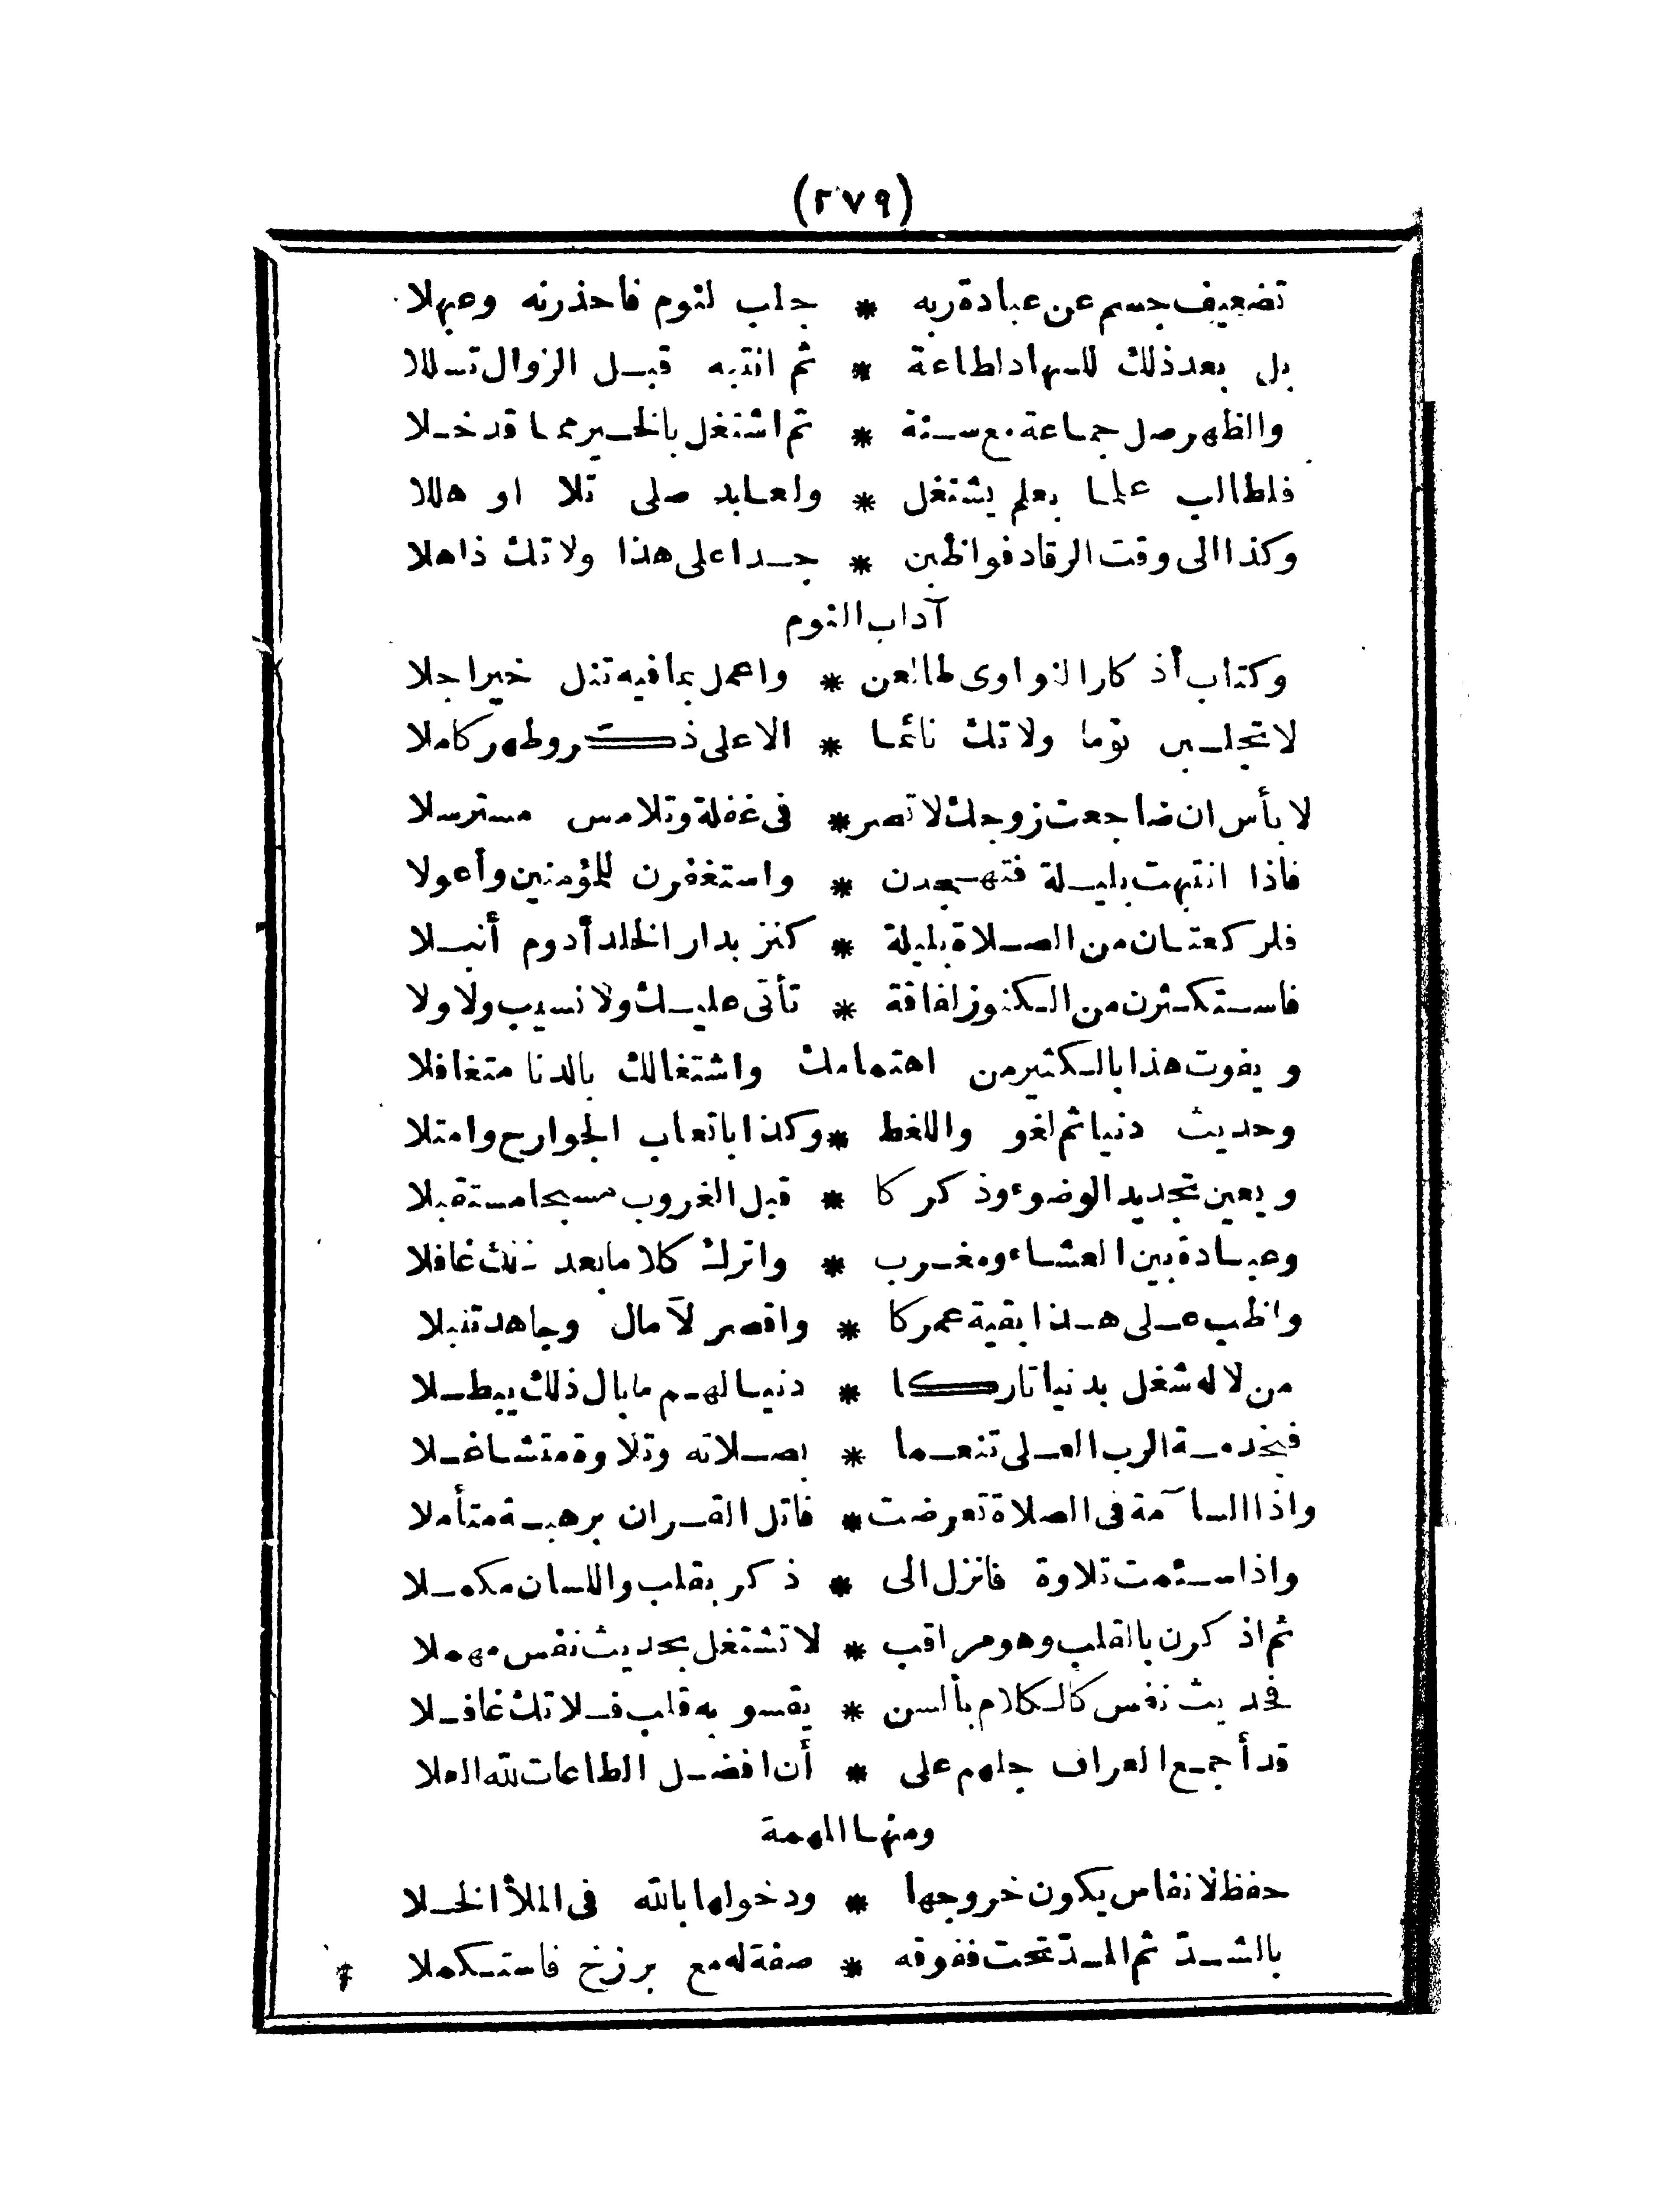 (٢٧٩)
تضعيف جسم عن عبادة ربه * جلب لنوم فاحذرنه وعبهلا
بل بعد ذلك للسهاد اطاعة * ثم انتبه قبل الزوال تسللا
والظهر صل جماعة مع سنة * ثم اشتغل بالخير مما قد خلا
فلطالب علما بعلم يشتغل * ولعابد صلى تلا او هللا
وكذا الى وقت الرقاد فواظبن * جدا على هذا ولا تك ذاهلا
آداب النوم
وكتاب أذكار النواوى طالعن * واعمل بما فيه تنل خيرا جلا
لا تجلبن نوما ولا تك نائما * الا على ذكر وطهر كاملا
لا بأس ان ضاجعت زوجك لا تصر * فى غفلة وتلامس مسترسلا
فاذا انتبهت بليلة فتهجدن * واستغفرن للمؤمنين وأعولا
فلركعتان من الصلاة بليلة * كنز بدار الخلد أدوم أنبلا
فاستكثرن من الكنوز لفاقة * تأتى عليك ولا نسيب ولا ولا
ويفوت هذا بالكثير من اهتمامك واشتغالك بالدنا متغافلا
وحديث دنيا ثم لغو واللغط * وكذا باتعاب الجوارح وامتلا
ويعين تجديد الوضوء وذكركا * قبل الغروب مسبحا مستقبلا
وعبادة بين العشاء ومغرب * واترك كلاما بعد تك غافلا
واظب على هذا بقية عمركا * واقصر لآمال وجاهد تنبلا
من لا له شغل بدنيا تاركا * دنيا لهم ما بال ذلك يبطلا
فبخدمة الرب العلى تنعما * بصلاته وتلاوة متشاغلا
واذا السآمة فى الصلاة تعرضت * فاتل القران برهبة متأملا
واذا سئمت تلاوة فانزل الى * ذكر بقلب واللسان مكملا
ثم اذكرن بالقلب وهو مراقب * لا تشتغل بحديث نفس مهملا
فحديث نفس كالكلام بألسن * يقسو به قلب فلا تك غافلا
قد أجمع العراف جلهم على * أن افضل الطاعات لله العلا
ومنها المهمة
حفظ لانفاس يكون خروجها * ودخولها بالله فى الملأ الخلا
بالشد ثم المد تحت ففوقه * صفة له مع برزخ فاستكملا